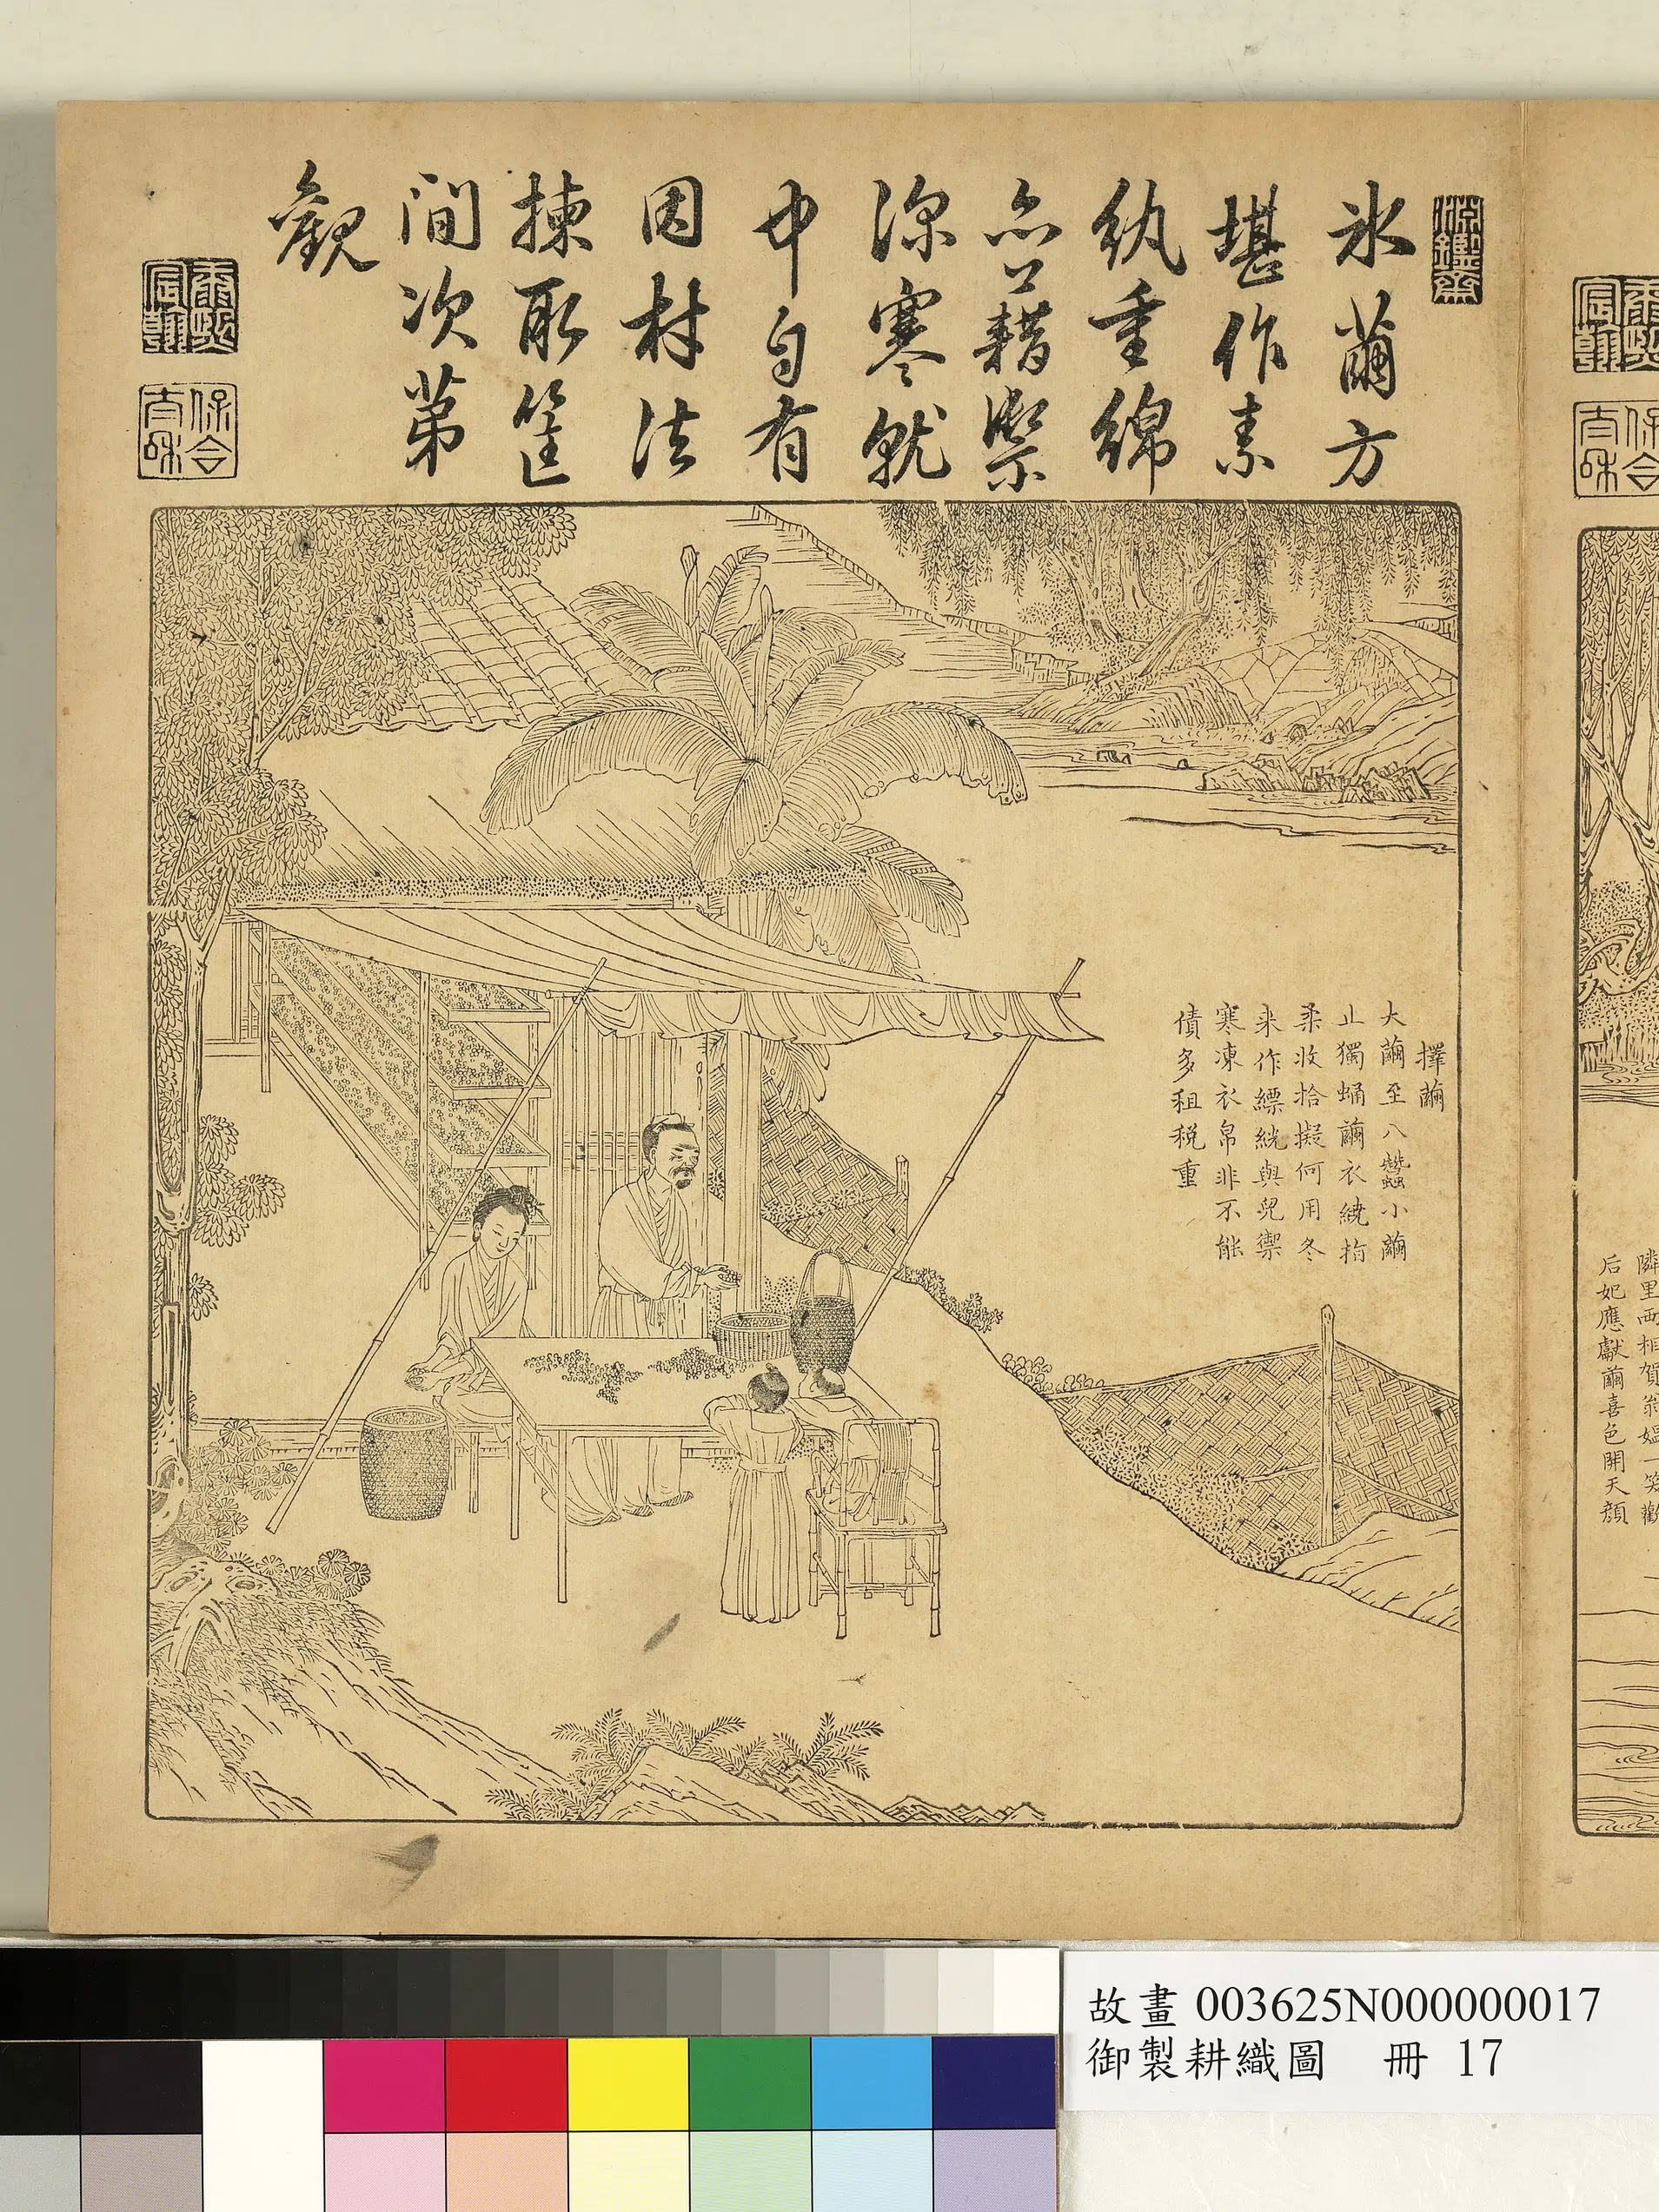 淵鑑齋
氷繭方
堪作素
紈重綿
亦藉禦
深寒就
中自有
因材法
揀取筐
間次第
觀
康熙宸翰
保合太和
擇繭
大繭至八蠶小繭
止獨蛹繭衣繞指
柔收拾擬何用冬
来作縹絖與兒禦
寒凍衣帛非不能
債多租税重
隣里両相賀翁媼一笑歡
后妃應獻繭喜色開天顏
故畫 003625N000000017
御製耕織圖 冊 17